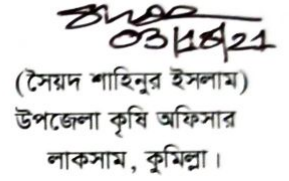 03/10/21
(সৈয়দ শাহিনুর ইসলাম)
উপজেলা কৃষি অফিসার
লাকসাম, কুমিল্লা।